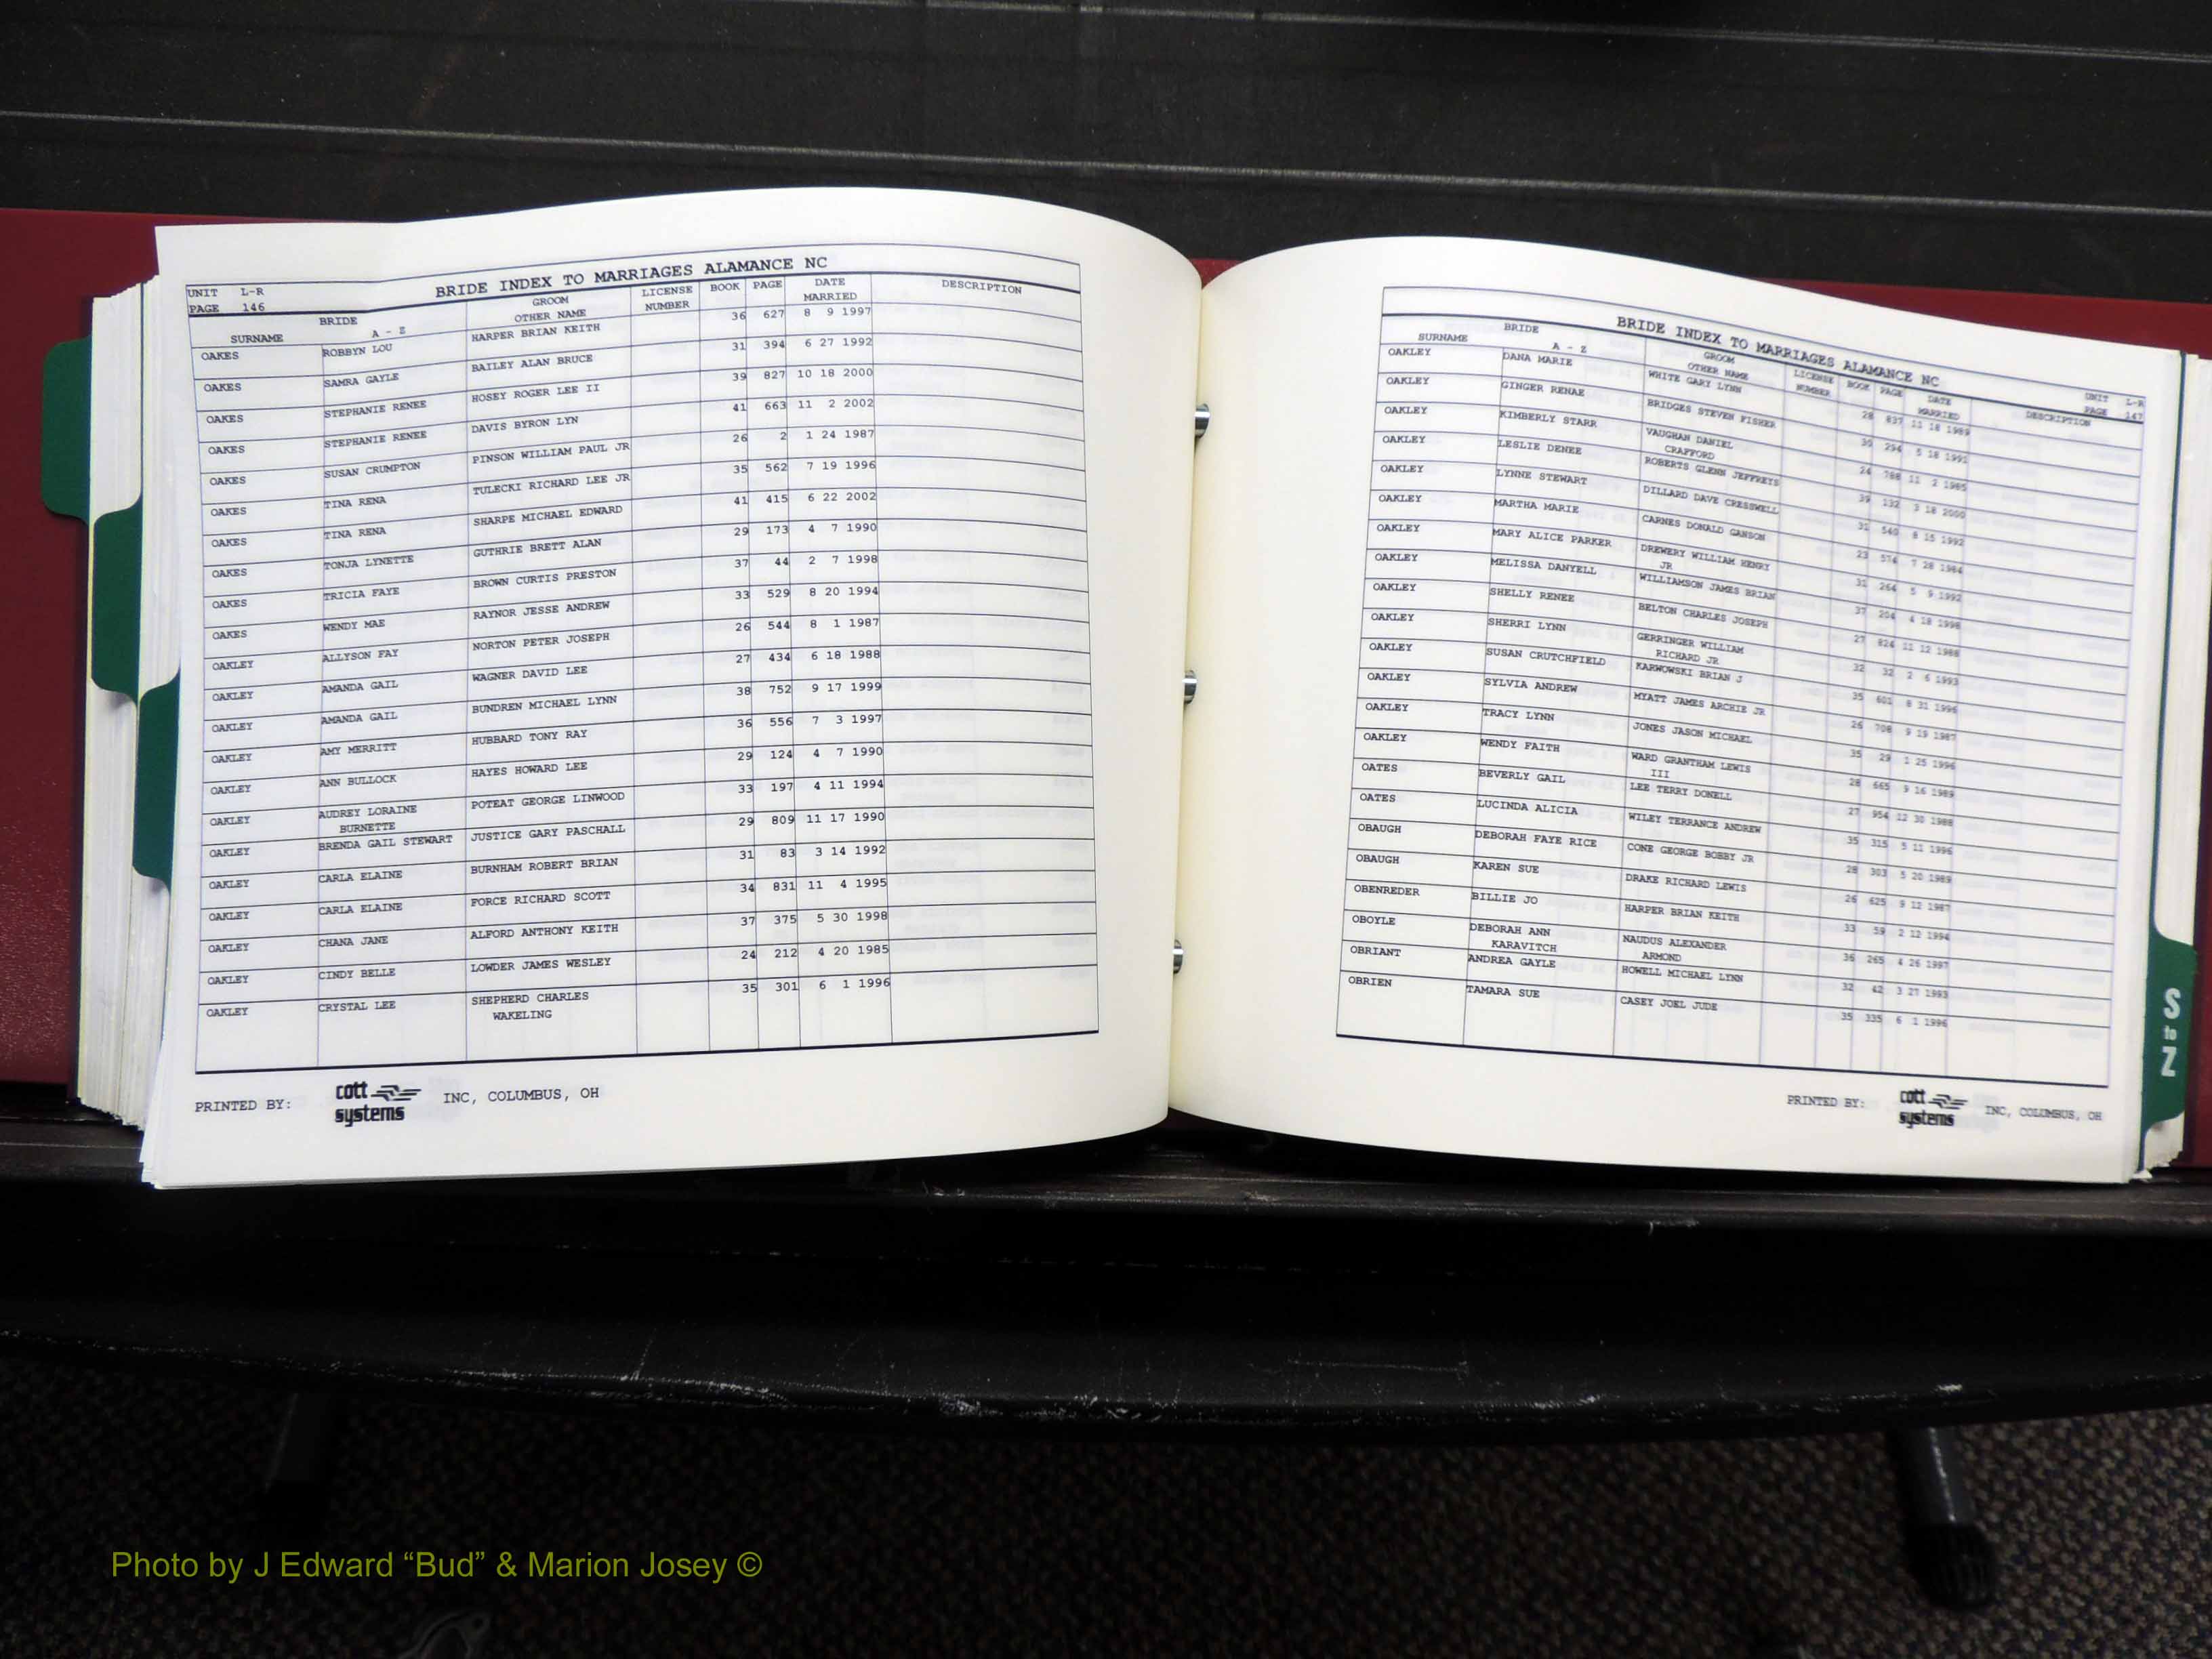 UNIT L-R
PAGE 146
BRIDE INDEX TO MARRIAGES ALAMANCE NC
SURNAME BRIDE A - Z GROOM OTHER NAME LICENSE NUMBER BOOK PAGE DATE MARRIED DESCRIPTION
OAKES ROBBYN LOU HARPER BRIAN KEITH 36 627 8 9 1997
OAKES SAMRA GAYLE BAILEY ALAN BRUCE 31 394 6 27 1992
OAKES STEPHANIE RENEE HOSEY ROGER LEE II 39 827 10 18 2000
OAKES STEPHANIE RENEE DAVIS BYRON LYN 41 663 11 2 2002
OAKES SUSAN CRUMPTON PINSON WILLIAM PAUL JR 26 2 1 24 1987
OAKES TINA RENA TULECKI RICHARD LEE JR 35 562 7 19 1996
OAKES TINA RENA SHARPE MICHAEL EDWARD 41 415 6 22 2002
OAKES TONJA LYNETTE GUTHRIE BRETT ALAN 29 173 4 7 1990
OAKES TRICIA FAYE BROWN CURTIS PRESTON 37 44 2 7 1998
OAKES WENDY MAE RAYNOR JESSE ANDREW 33 529 8 20 1994
OAKLEY ALLYSON FAY NORTON PETER JOSEPH 26 544 8 1 1987
OAKLEY AMANDA GAIL WAGNER DAVID LEE 27 434 6 18 1988
OAKLEY AMANDA GAIL BUNDREN MICHAEL LYNN 38 752 9 17 1999
OAKLEY AMY MERRITT HUBBARD TONY RAY 36 556 7 3 1997
OAKLEY ANN BULLOCK HAYES HOWARD LEE 29 124 4 7 1990
OAKLEY AUDREY LORAINE POTEAT GEORGE LINWOOD 33 197 4 11 1994
BURNETTE
OAKLEY BRENDA GAIL STEWART JUSTICE GARY PASCHALL 29 809 11 17 1990
OAKLEY CARLA ELAINE BURNHAM ROBERT BRIAN 31 83 3 14 1992
OAKLEY CARLA ELAINE FORCE RICHARD SCOTT 34 831 11 4 1995
OAKLEY CHANA JANE ALFORD ANTHONY KEITH 37 375 5 30 1998
OAKLEY CINDY BELLE LOWDER JAMES WESLEY 24 212 4 20 1985
OAKLEY CRYSTAL LEE SHEPHERD CHARLES 35 301 6 1 1996
WAKELING
PRINTED BY: cott systems INC, COLUMBUS, OH
BRIDE INDEX TO MARRIAGES ALAMANCE NC
UNIT L-R
PAGE 147
SURNAME BRIDE A - Z GROOM OTHER NAME LICENSE NUMBER BOOK PAGE DATE MARRIED DESCRIPTION
OAKLEY DANA MARIE WHITE GARY LYNN 28 837 11 18 1989
OAKLEY GINGER RENAE BRIDGES STEVEN FISHER 254 5 18
OAKLEY KIMBERLY STARR VAUGHAN DANIEL 24 788 11 2 1985
CRAFFORD
OAKLEY LESLIE DENEE ROBERTS GLENN JEFFREYS 39 132 3 18 2000
OAKLEY LYNNE STEWART DILLARD DAVE CRESSWELL 31 540 8 15 1992
OAKLEY MARTHA MARIE CARNES DONALD GANSON 23 574 7 28 1984
OAKLEY MARY ALICE PARKER DREWERY WILLIAM HENRY 31 264 5 9 1992
JR
OAKLEY MELISSA DANYELL WILLIAMSON JAMES BRIAN 37 204 4 18 1998
OAKLEY SHELLY RENEE BELTON CHARLES JOSEPH 27 824 11 12 1988
OAKLEY SHERRI LYNN GERRINGER WILLIAM 32 32 2 6 1993
RICHARD JR
OAKLEY SUSAN CRUTCHFIELD KARWOWSKI BRIAN J 35 601 8 31 1996
OAKLEY SYLVIA ANDREW MYATT JAMES ARCHIE JR 26 708 9 19 1987
OAKLEY TRACY LYNN JONES JASON MICHAEL 35 29 1 25 1996
OAKLEY WENDY FAITH WARD GRANTHAM LEWIS 28 665 9 16 1989
III
OATES BEVERLY GAIL LEE TERRY DONELL 27 954 12 30 1988
OATES LUCINDA ALICIA WILEY TERRANCE ANDREW 35 315 5 11 1996
OBAUGH DEBORAH FAYE RICE CONE GEORGE BOBBY JR 28 303 5 20 1989
OBAUGH KAREN SUE DRAKE RICHARD LEWIS 26 625 9 12 1987
OBENREDER BILLIE JO HARPER BRIAN KEITH 33 59 2 12 1994
OBOYLE DEBORAH ANN NAUDUS ALEXANDER 36 265 4 26 1997
KARAVITCH ARMOND
OBRIANT ANDREA GAYLE HOWELL MICHAEL LYNN 32 42 3 27 1993
OBRIEN TAMARA SUE CASEY JOEL JUDE 35 335 6 1 1996
PRINTED BY: cott systems INC, COLUMBUS, OH
S to Z
Photo by J Edward “Bud” & Marion Josey ©